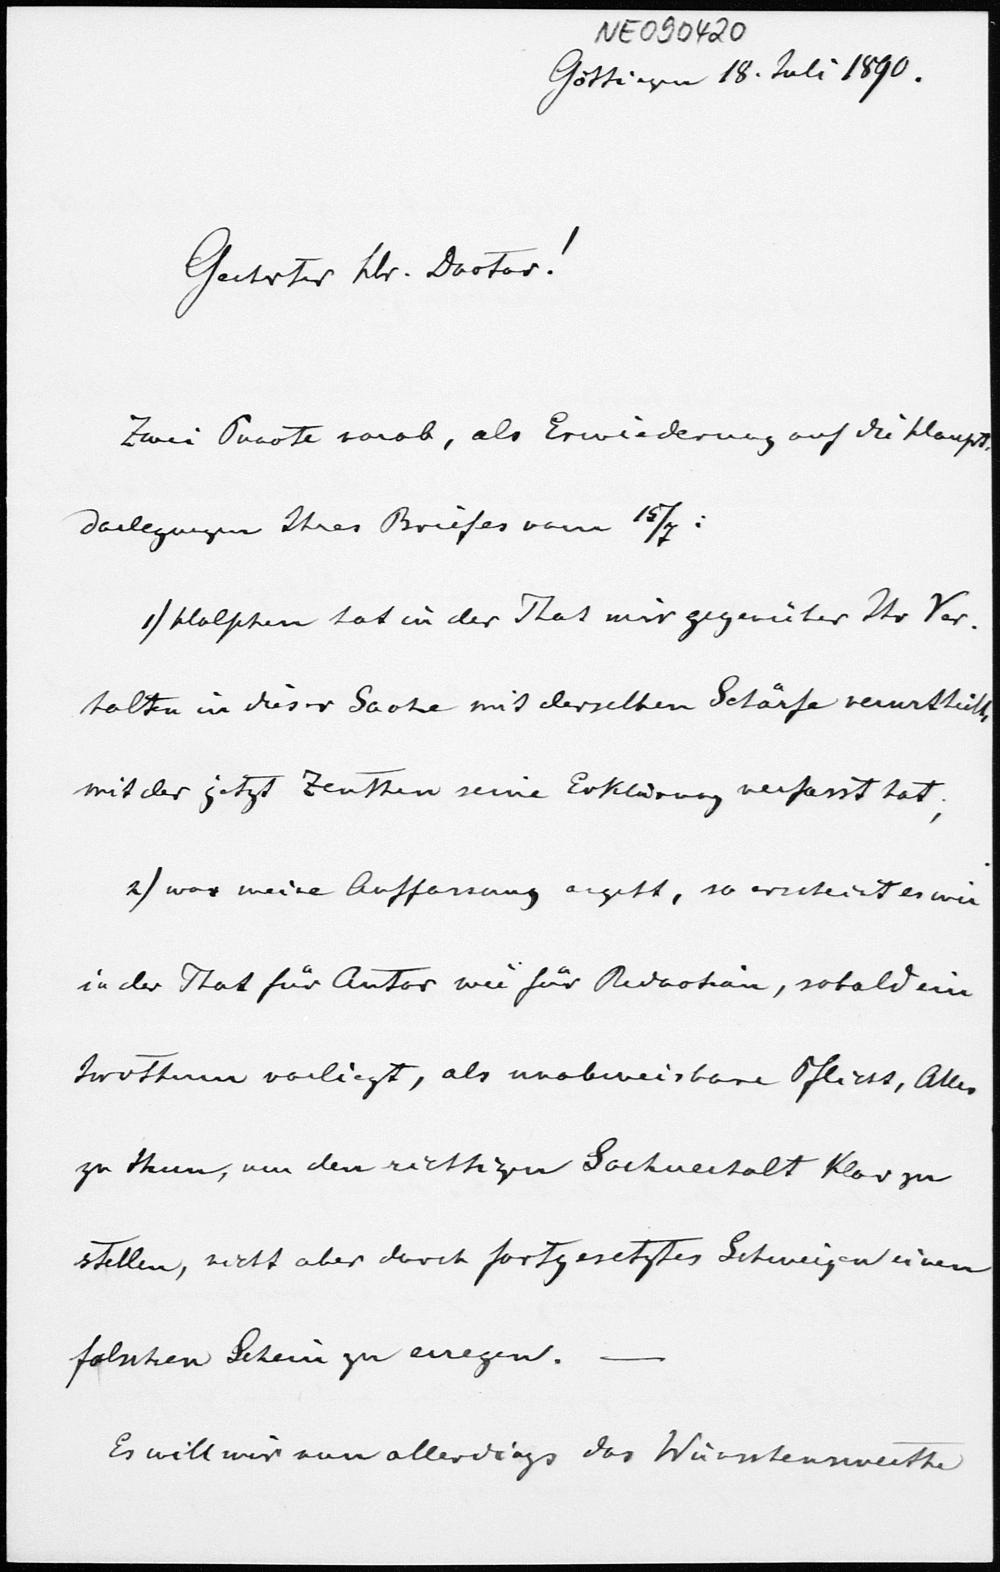 NE090420
Göttingen 18. Juli 1890.
Geehrter Hr. Doctor!
Zwei Puncte vorab, als Erwiederung auf die Haupt-
darlegungen Ihres Briefes vom 15/7:
1) Halphen hat in der That mir gegenüber Ihr Ver-
halten in dieser Sache mit derselben Schärfe verurtheilt,
mit der jetzt Zeuthen seine Erklärung verfasst hat;
2) was meine Auffassung angeht, so erscheint es mir
in der That für Autor wie für Redaction, sobald ein
Irrthum vorliegt, als unabweisbare Pflicht, Alles
zu thun, um den richtigen Sachverhalt klar zu
stellen, nicht aber durch fortgesetztes Schweigen einen
falschen Schein zu erregen. —
Es will mir nun allerdings das Wünschenswerthe